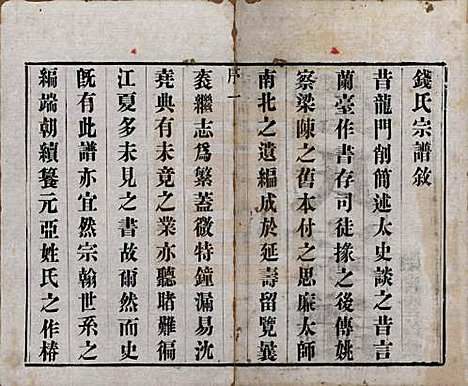 錢氏宗譜敘
昔龍門削簡述太史談之昔言
蘭臺作書存司徒掾之後傳姚
察梁陳之舊本付之思廉太師
南北之遺編成於延壽留覽曩
序 一
袠繼志爲繁蓋微特鐘漏易沈
堯典有未竟之業亦聽睹難徧
江夏多未見之書故爾然而史
旣有此譜亦宜然宗翰世系之
編端朝續纂元亞姓氏之作椿